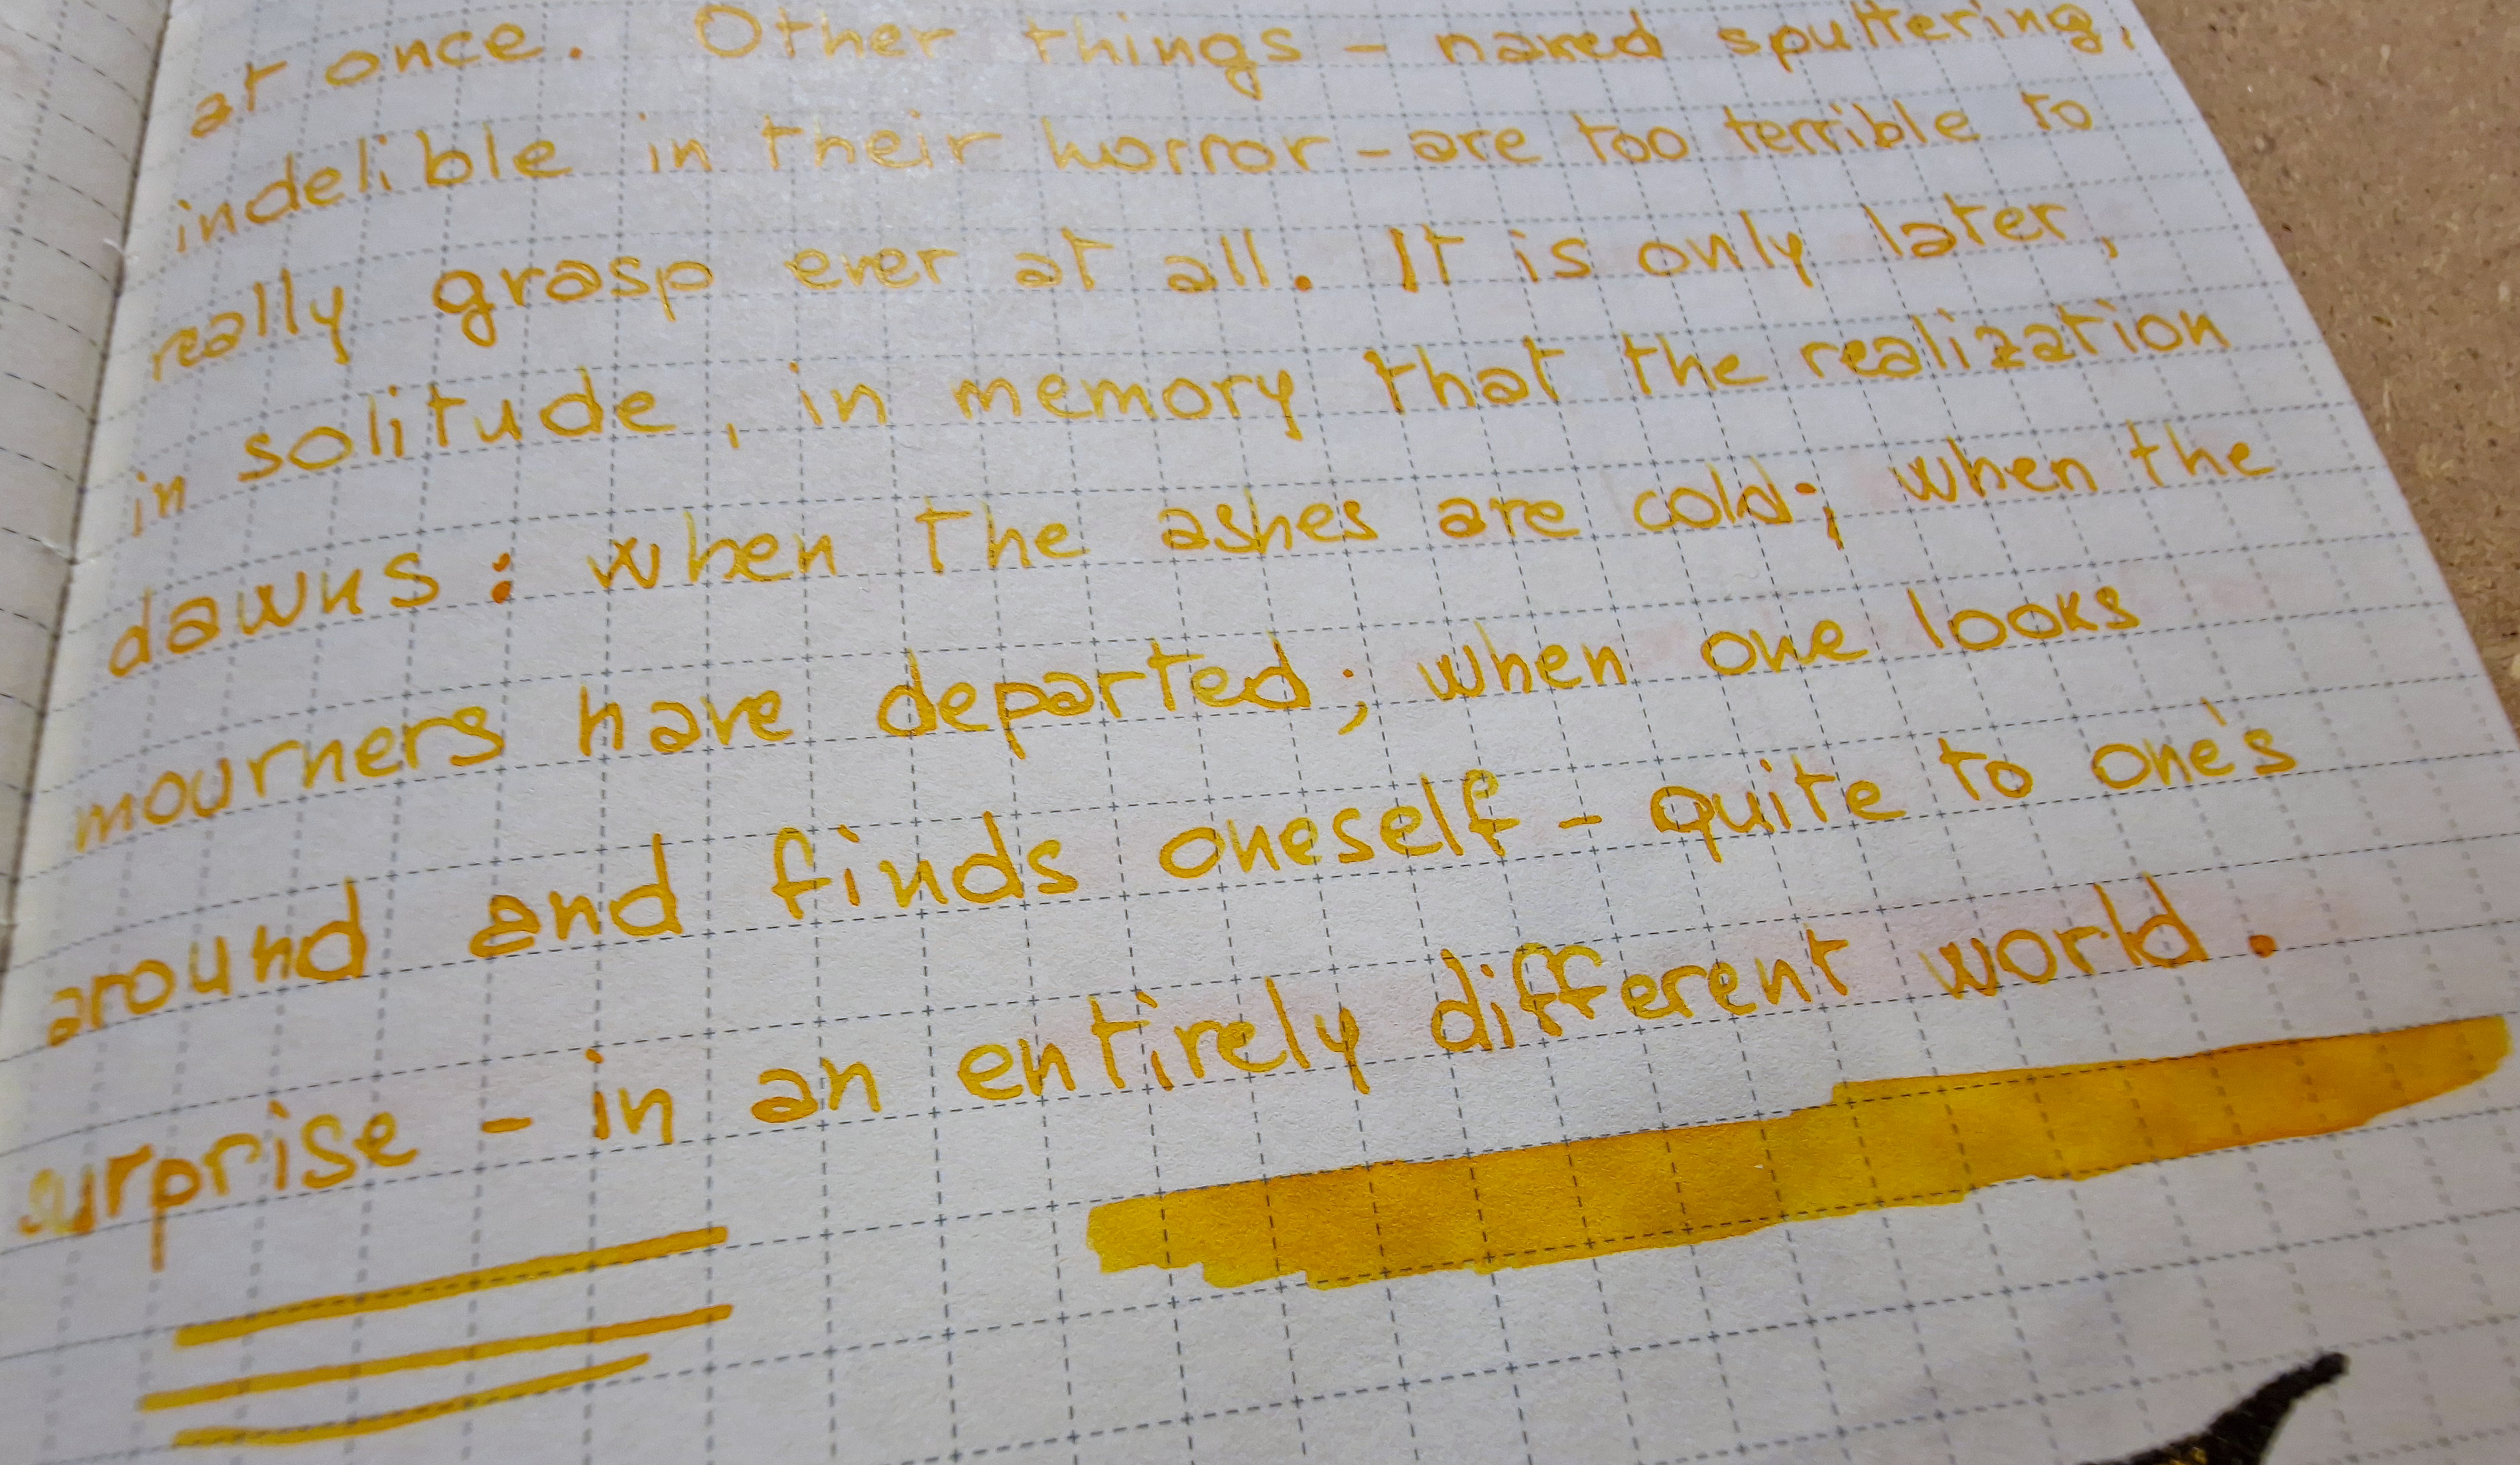 at once. Other things - naked sputtering,
indelible in their horror - are too terrible to
really grasp ever at all. It is only later,
in solitude, in memory that the realization
dawns: when the ashes are cold; when the
mourners have departed; when one looks
around and finds oneself - quite to one's
surprise - in an entirely different world.